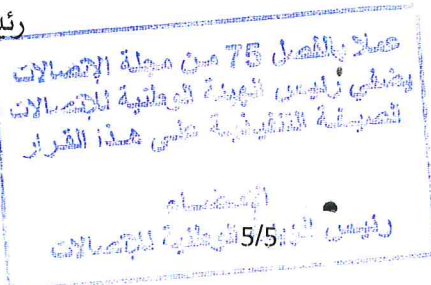 رئي
عملا بالفصل 75 من مجلة الإتصالات
يضفي رئيس الهيئة الوطنية للإتصالات
الصبغة التنفيذية على هذا القرار
الإمضاء
رئيس الهيئة الوطنية للإتصالات
5/5